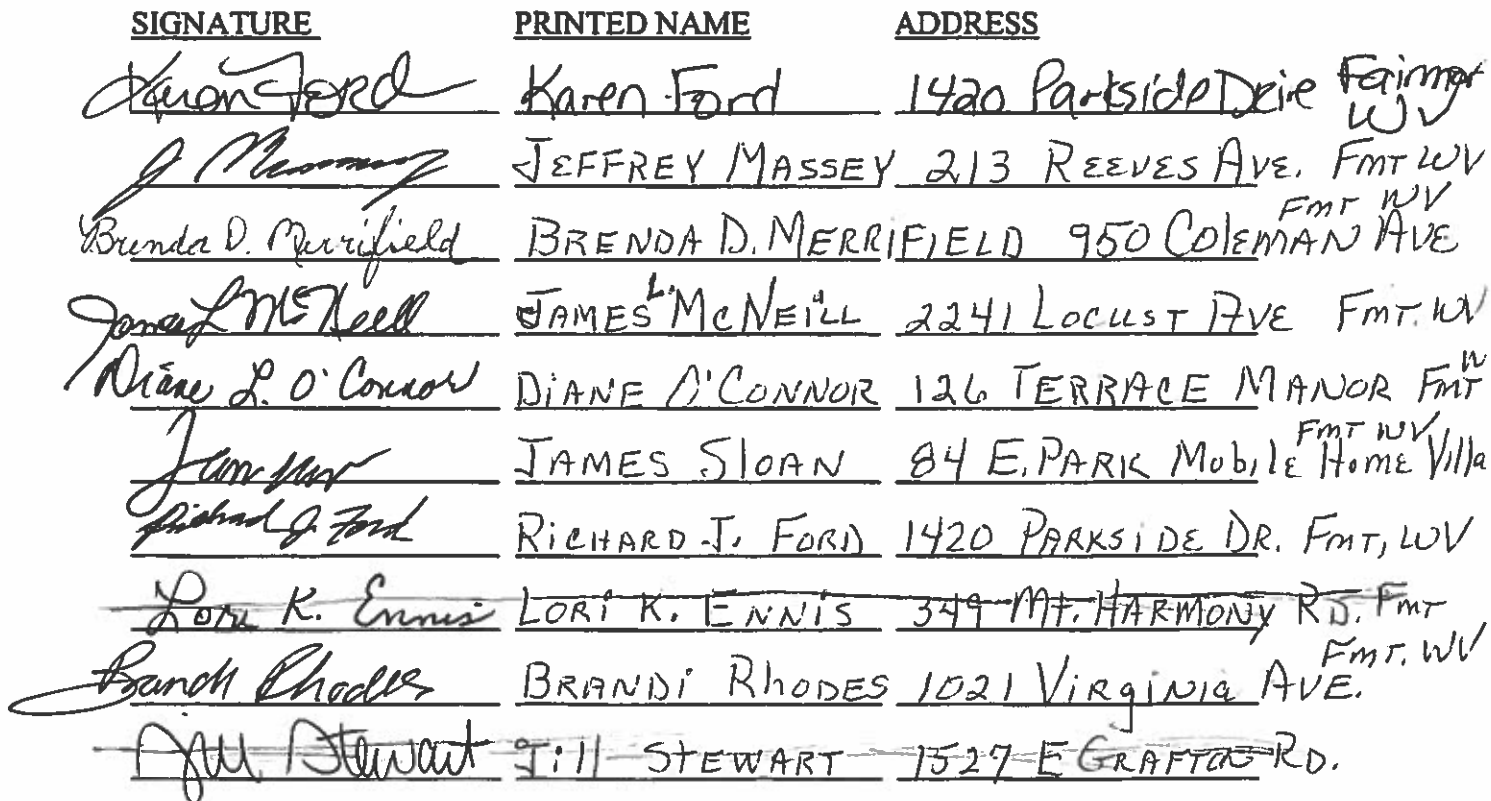 SIGNATURE PRINTED NAME ADDRESS
Karen Ford Karen Ford 1420 Parkside Drive Fairmont WV
J Massey JEFFREY MASSEY 213 REEVES AVE. FMT WV
Brenda D. Merrifield BRENDA D. MERRIFIELD 950 COLEMAN AVE FMT WV
James L McNeill JAMES L. McNEILL 2241 LOCUST AVE FMT. WV
Diane L. O'Connor DIANE O'CONNOR 126 TERRACE MANOR FMT W
JAMES SLOAN 84 E. PARK MobilE HomE Villa FMT WV
Richard J. Ford RICHARD J. FORD 1420 PARKSIDE DR. FMT, WV
Lori K. Ennis LORI K. ENNIS 349 Mt. HARMONY RD. FMT
Brandi Rhodes BRANDI RhODES 1021 VIRgiNIa AVE. FMT. WV
Jill Stewart Jill STEWART 1527 E GRAFTON RD.